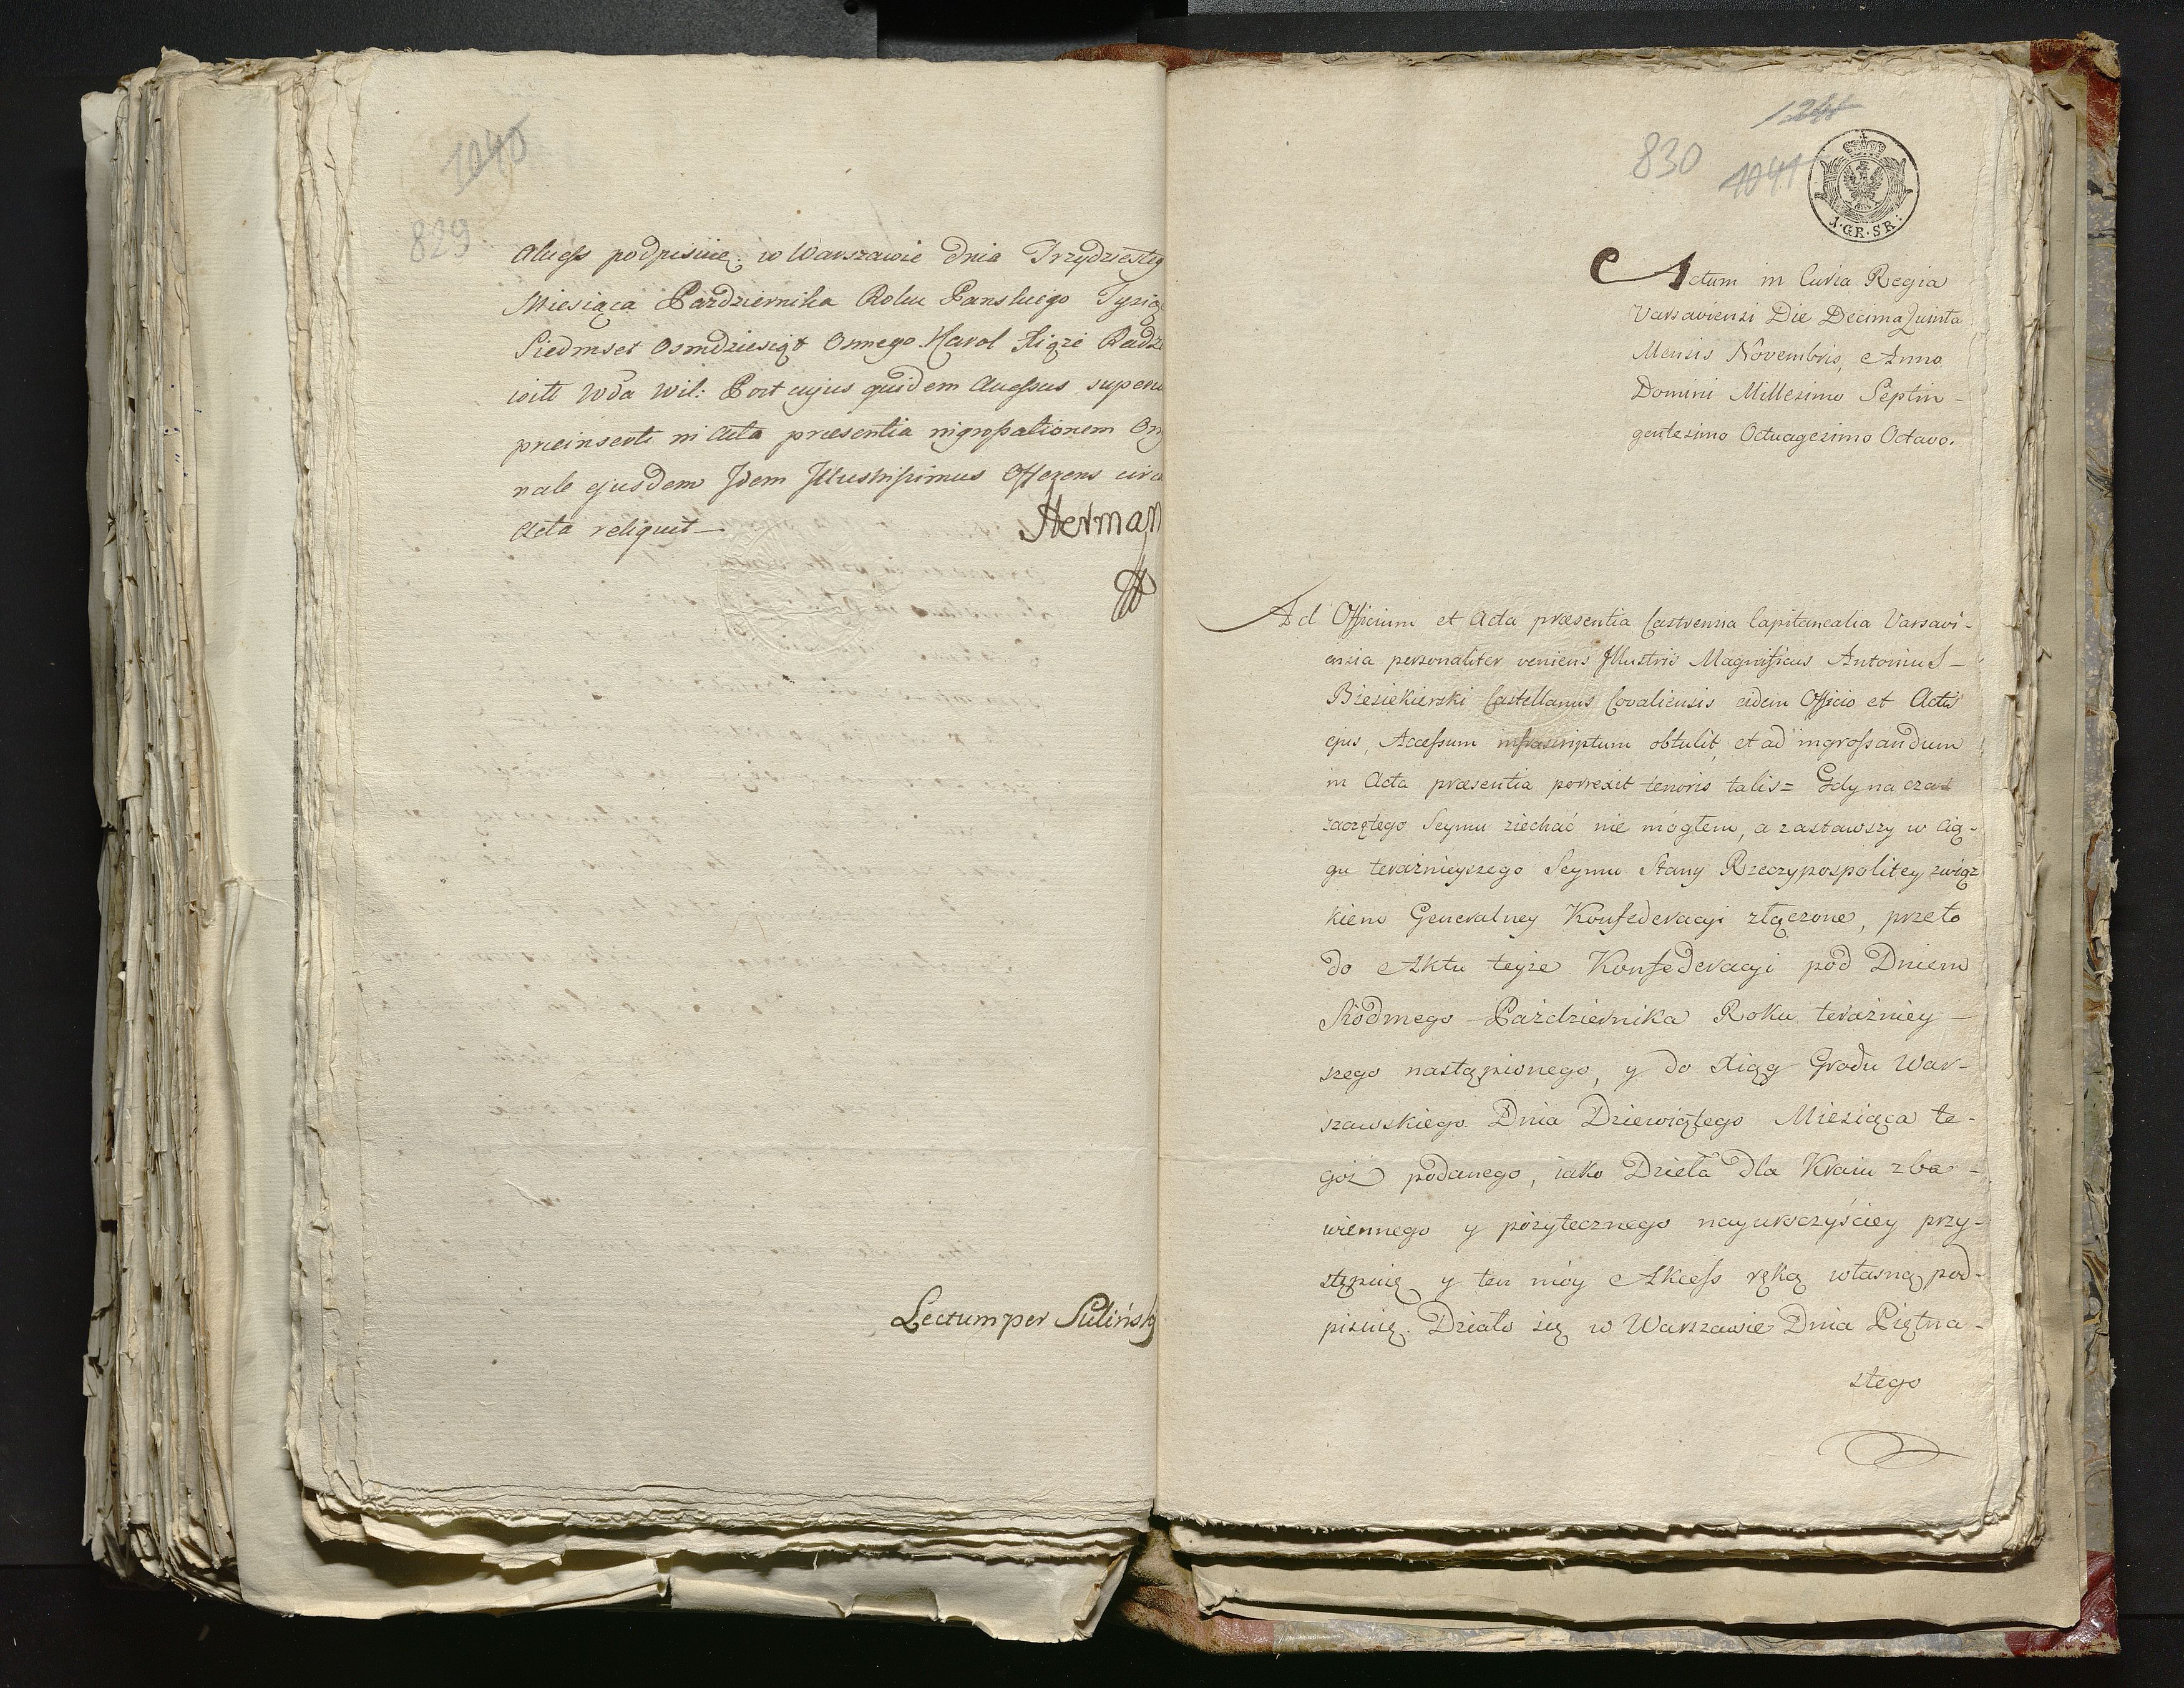 1040
829
Akcess podpisuię. w Warszawie dnia Trzydziesteg
Miesiąca Października Roku Panskiego Tysiąc
Siedmset Osmdziesiąt Osmego Karol Xiąże Radzi
wiłł Wda Wil: Post cujus quidem Accessus superius
preinserti in Acta præsentia ingrossationem Ori
nale ejusdem Idem Illustrissimus Offerens circa
Acta reliquit—
Herman
Lectum per Suliński
1241
830 1041
1·GR·SR:
Actum in Curia Regia
Varsaviensi Die Decima Quinta
Mensis Novembris, Anno
Domini Millesimo Septin-
gentesimo Octuagesimo Octavo.
Ad Officium et Acta præsentia Castrensia Capitanealia Varsavi-
ensia personaliter veniens Illustris Magnificus Antonius
Biesiekierski Castellanus Covaliensis eidem Officio et Actis
ejus, Accessum infrascriptum obtulit, et ad ingrossandum
in Acta præsentia porrexit tenoris talis= Gdy na czas
zaczętego Seymu ziechać nie mogłem, a zastawszy w cią-
gu teraźnieyszego Seymu Stany Rzeczypospolitey związ
kiem Generalney Konfederacyi złączone, przeto
do Aktu teyże Konfederacyi pod Dniem
Siódmego Października Roku teraźniey-
szego nastąpionego, y do Xiąg Grodu War-
szawskiego Dnia Dziewiątego Miesiąca te-
goż podanego, iako Dzieła dla Kraiu zba-
wiennego y pożytecznego nayuroczyściey przy-
stępuię y ten móy Akcess ręką własną pod-
pisuię. Działo się w Warszawie Dnia Piętna-
stego